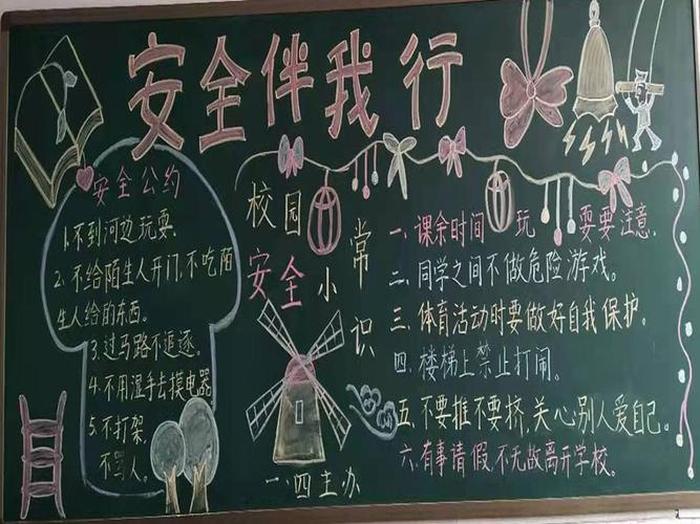 安全伴我行
安全公约
1.不到河边玩耍.
2.不给陌生人开门,不吃陌
生人给的东西。
3.过马路不追逐。
4.不用湿手去摸电器
5.不打架,
不骂人。
校园
安全
小常识
一、课余时间玩耍要注意.
二、同学之间不做危险游戏。
三、体育活动时要做好自我保护。
四、楼梯上禁止打闹。
五、不要推不要挤,关心别人爱自己。
六.有事请假,不无故离开学校。
一.四主办